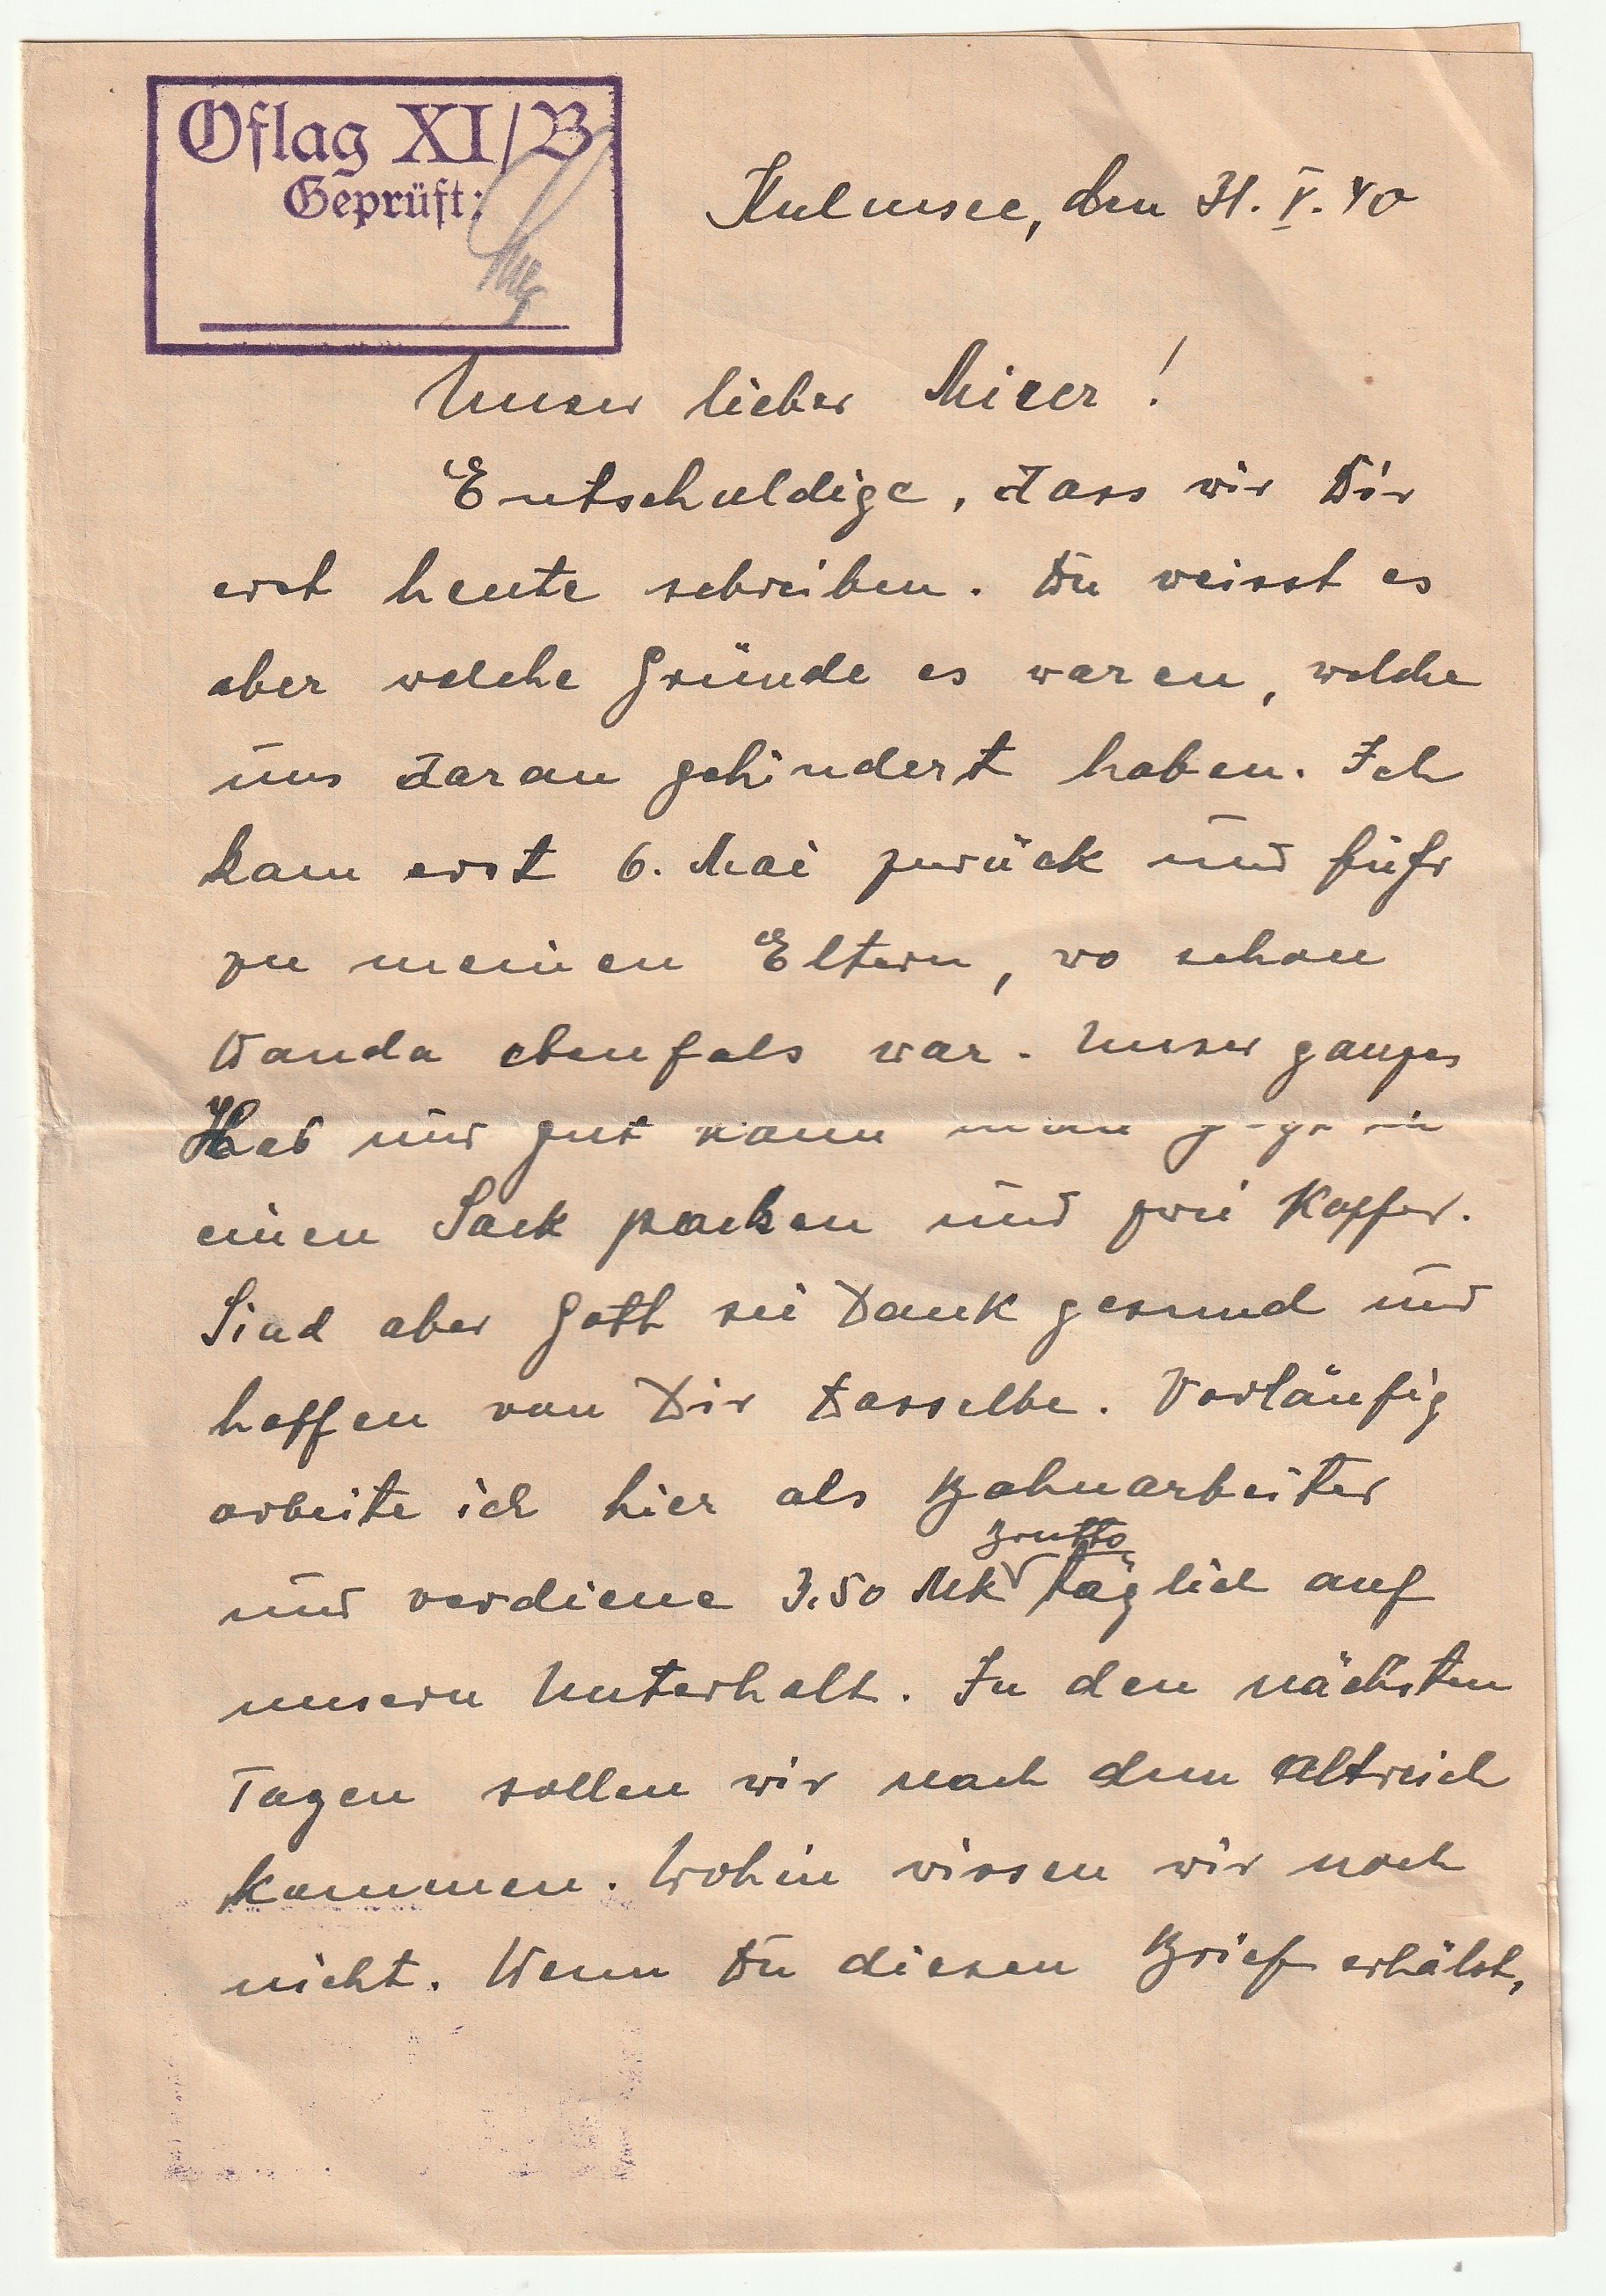 Oflag XI/B
Geprüft:
Kulmsee, den 31. V. 40
Unser lieber
Entschuldige, dass wir Dir
erst heute schreiben. Du weisst es
aber welche Gründe es waren, welche
uns daran gehindert haben. Ich
kam erst 6. Mai zurück und fuhr
zu meinen Eltern, wo schon
Wanda ebenfals war. Unser ganzes
Hab und gut kann man in
einen Sack packen und zwei Koffer.
Sind aber Gott sei Dank gesund und
hoffen von Dir Dasselbe. Vorläufig
arbeite ich hier als Bahnarbeiter
und verdiene 3.50 Mk brutto täglich auf
unsern Unterhalt. In den nächsten
Tagen sollen wir nach dem Altreich
kommen. Wohin wissen wir noch
nicht. Wenn Du diesen Brief erhälst,